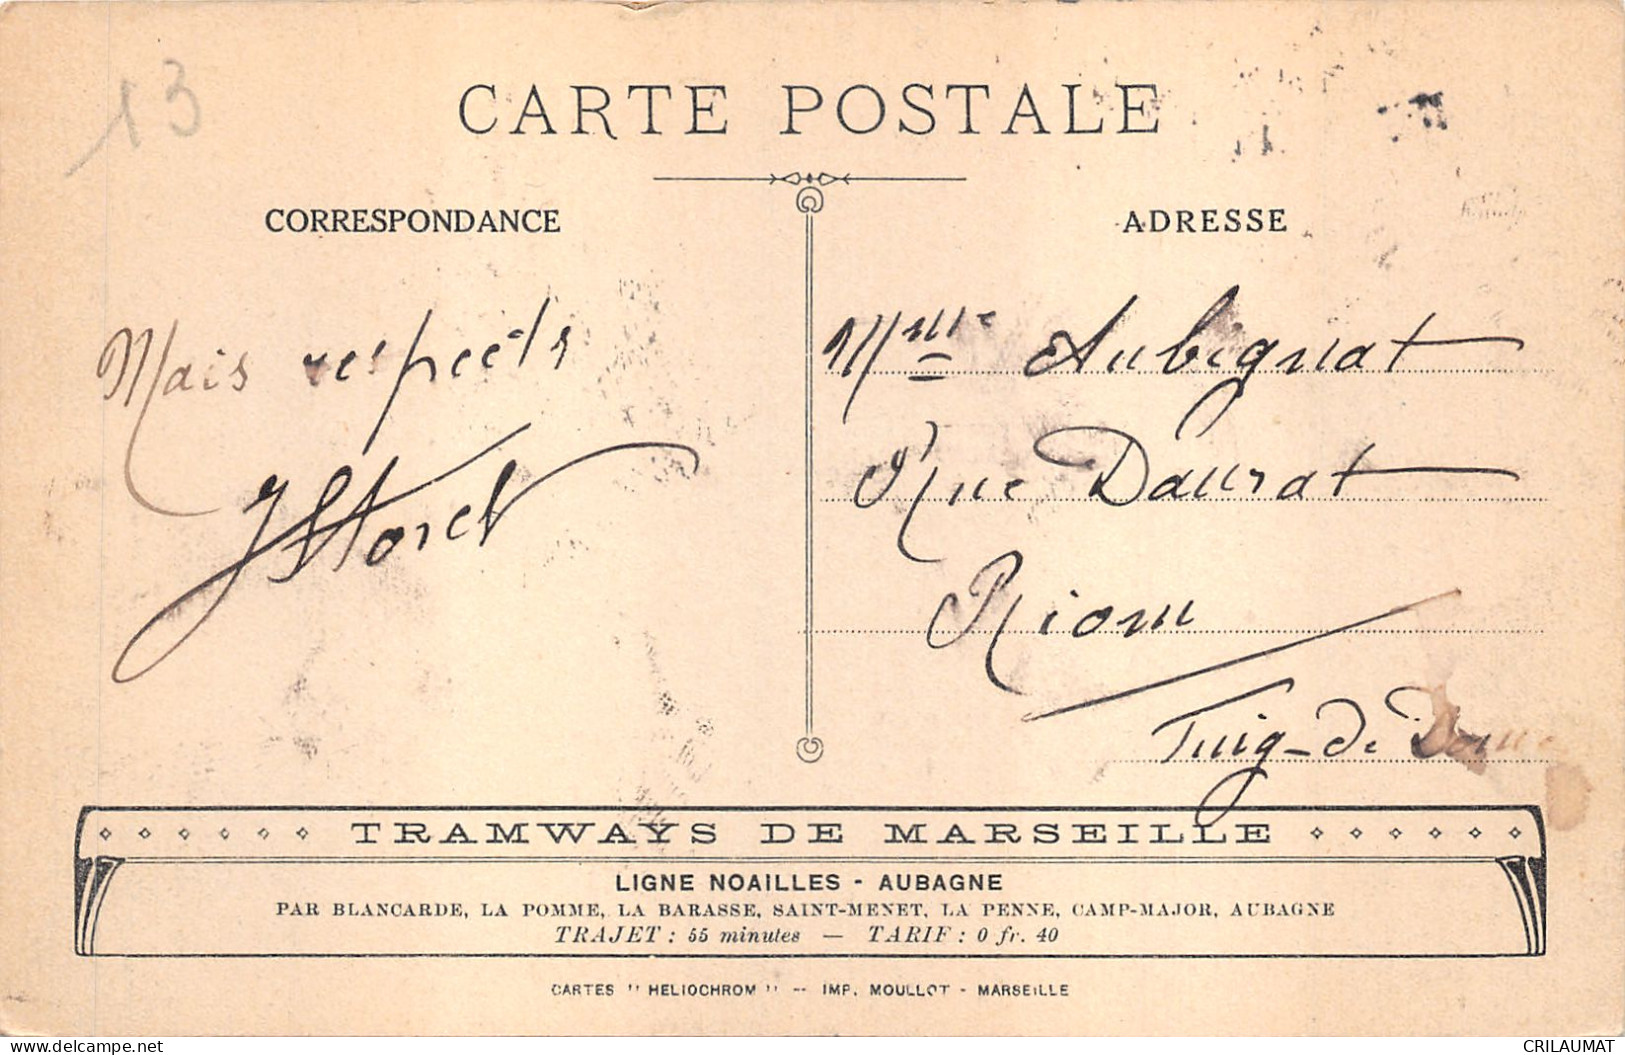 13
CARTE POSTALE
CORRESPONDANCE
ADRESSE
Mais respects
Mme Aubignat
Rue Daurat
Riom
Puig-de Dome
TRAMWAYS DE MARSEILLE
LIGNE NOAILLES - AUBAGNE
PAR BLANCARDE, LA POMME, LA BARASSE, SAINT-MENET, LA PENNE, CAMP-MAJOR, AUBAGNE
TRAJET : 55 minutes — TARIF : 0 fr. 40
CARTES " HELIOCHROM " -- IMP. MOULLOT - MARSEILLE
www.delcampe.net
CRILAUMAT